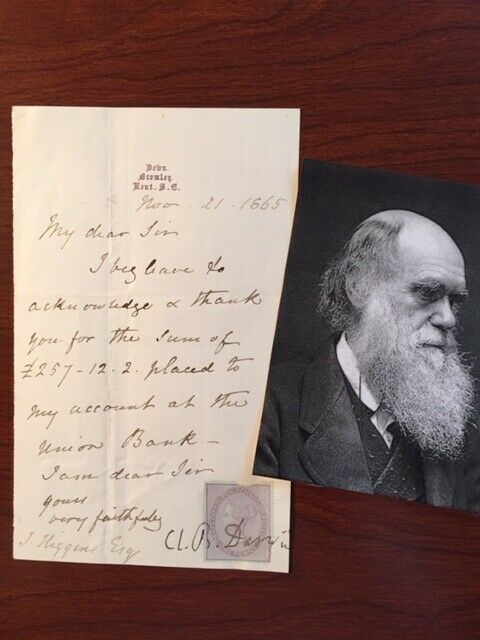 Down.
Bromley.
Kent. S.E.
Nov. 21. 1865
My dear Sir
I beg leave to
acknowledge & thank
you for the sum of
£257-12.2. placed to
my account at the
Union Bank —
I am dear Sir
yours
very faithfully
Ch. R. Darwin
J. Higgins Esq